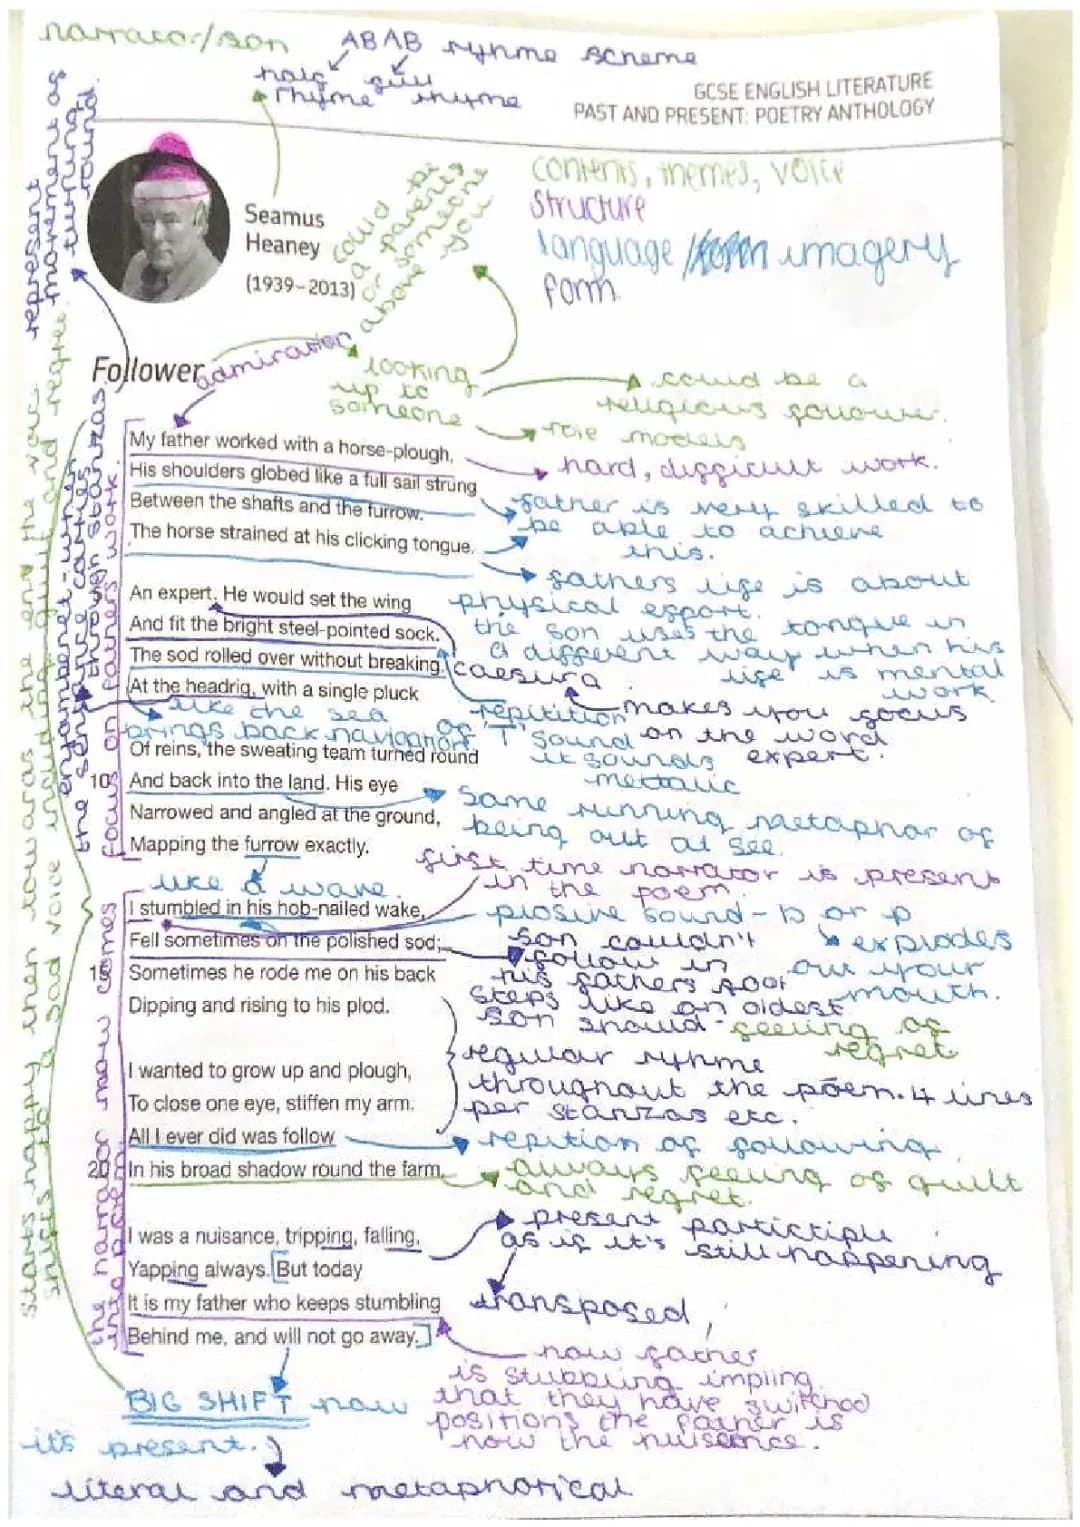 narrator/son
ABAB ryhme scheme
half full
rhyme rhyme
GCSE ENGLISH LITERATURE
PAST AND PRESENT: POETRY ANTHOLOGY
represent movement of turning round.
Seamus
Heaney
(1939–2013)
could be a parent or someone above you
contents, themes, voice
structure
language / imagery
form
Follower
admiration
looking
up to
someone
could be a
religious follower.
role models
My father worked with a horse-plough,
hard, difficult work.
His shoulders globed like a full sail strung
Between the shafts and the furrow.
father is very skilled to
be able to achieve
this.
The horse strained at his clicking tongue.
fathers life is about
physical effort.
the son uses the tongue in
a different way when his
life is mental
work
5 An expert. He would set the wing
And fit the bright steel-pointed sock.
The sod rolled over without breaking.
caesura
makes you focus
on the word
expert.
At the headrig, with a single pluck
like the sea
brings back navigation
repitition
of 'T' sound
it sounds
mettalic
Of reins, the sweating team turned round
10 And back into the land. His eye
Narrowed and angled at the ground,
Mapping the furrow exactly.
same running metaphor of
being out at see.
like a wave.
first time narrator is present
in the poem.
I stumbled in his hob-nailed wake,
plosive sound - b or p
explodes
out your
mouth.
Fell sometimes on the polished sod;
son couldn't
follow in
his fathers foot
steps like an oldest
son should - feeling of
regret
15 Sometimes he rode me on his back
Dipping and rising to his plod.
regular ryhme
throughout the poem. 4 lines
per stanzas etc.
I wanted to grow up and plough,
To close one eye, stiffen my arm.
All I ever did was follow
repition of following
20 In his broad shadow round the farm.
always feeling of guilt
and regret.
I was a nuisance, tripping, falling,
present partictiple
as if it's still happening
Yapping always. But today
It is my father who keeps stumbling
transposed
Behind me, and will not go away.
now father
is stubbling impling
that they have switched
positions the father is
now the nuisence.
BIG SHIFT now
it's present.
literal and metaphorical
focus on fathers work.
the narrator now comes
into poem
starts happy then towards the end the voice
shifts into a sad voice including guilt and regret.